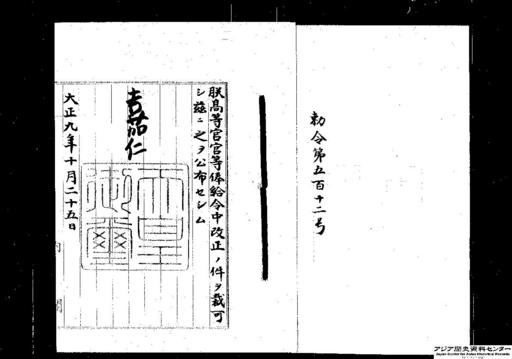 勅令第五百十二号
朕高等官官等俸給令中改正ノ件ヲ裁可
シ茲ニ之ヲ公布セシム
嘉仁
天皇御璽
大正九年十月二十五日
アジア歴史資料センター
Japan Center for Asian Historical Records